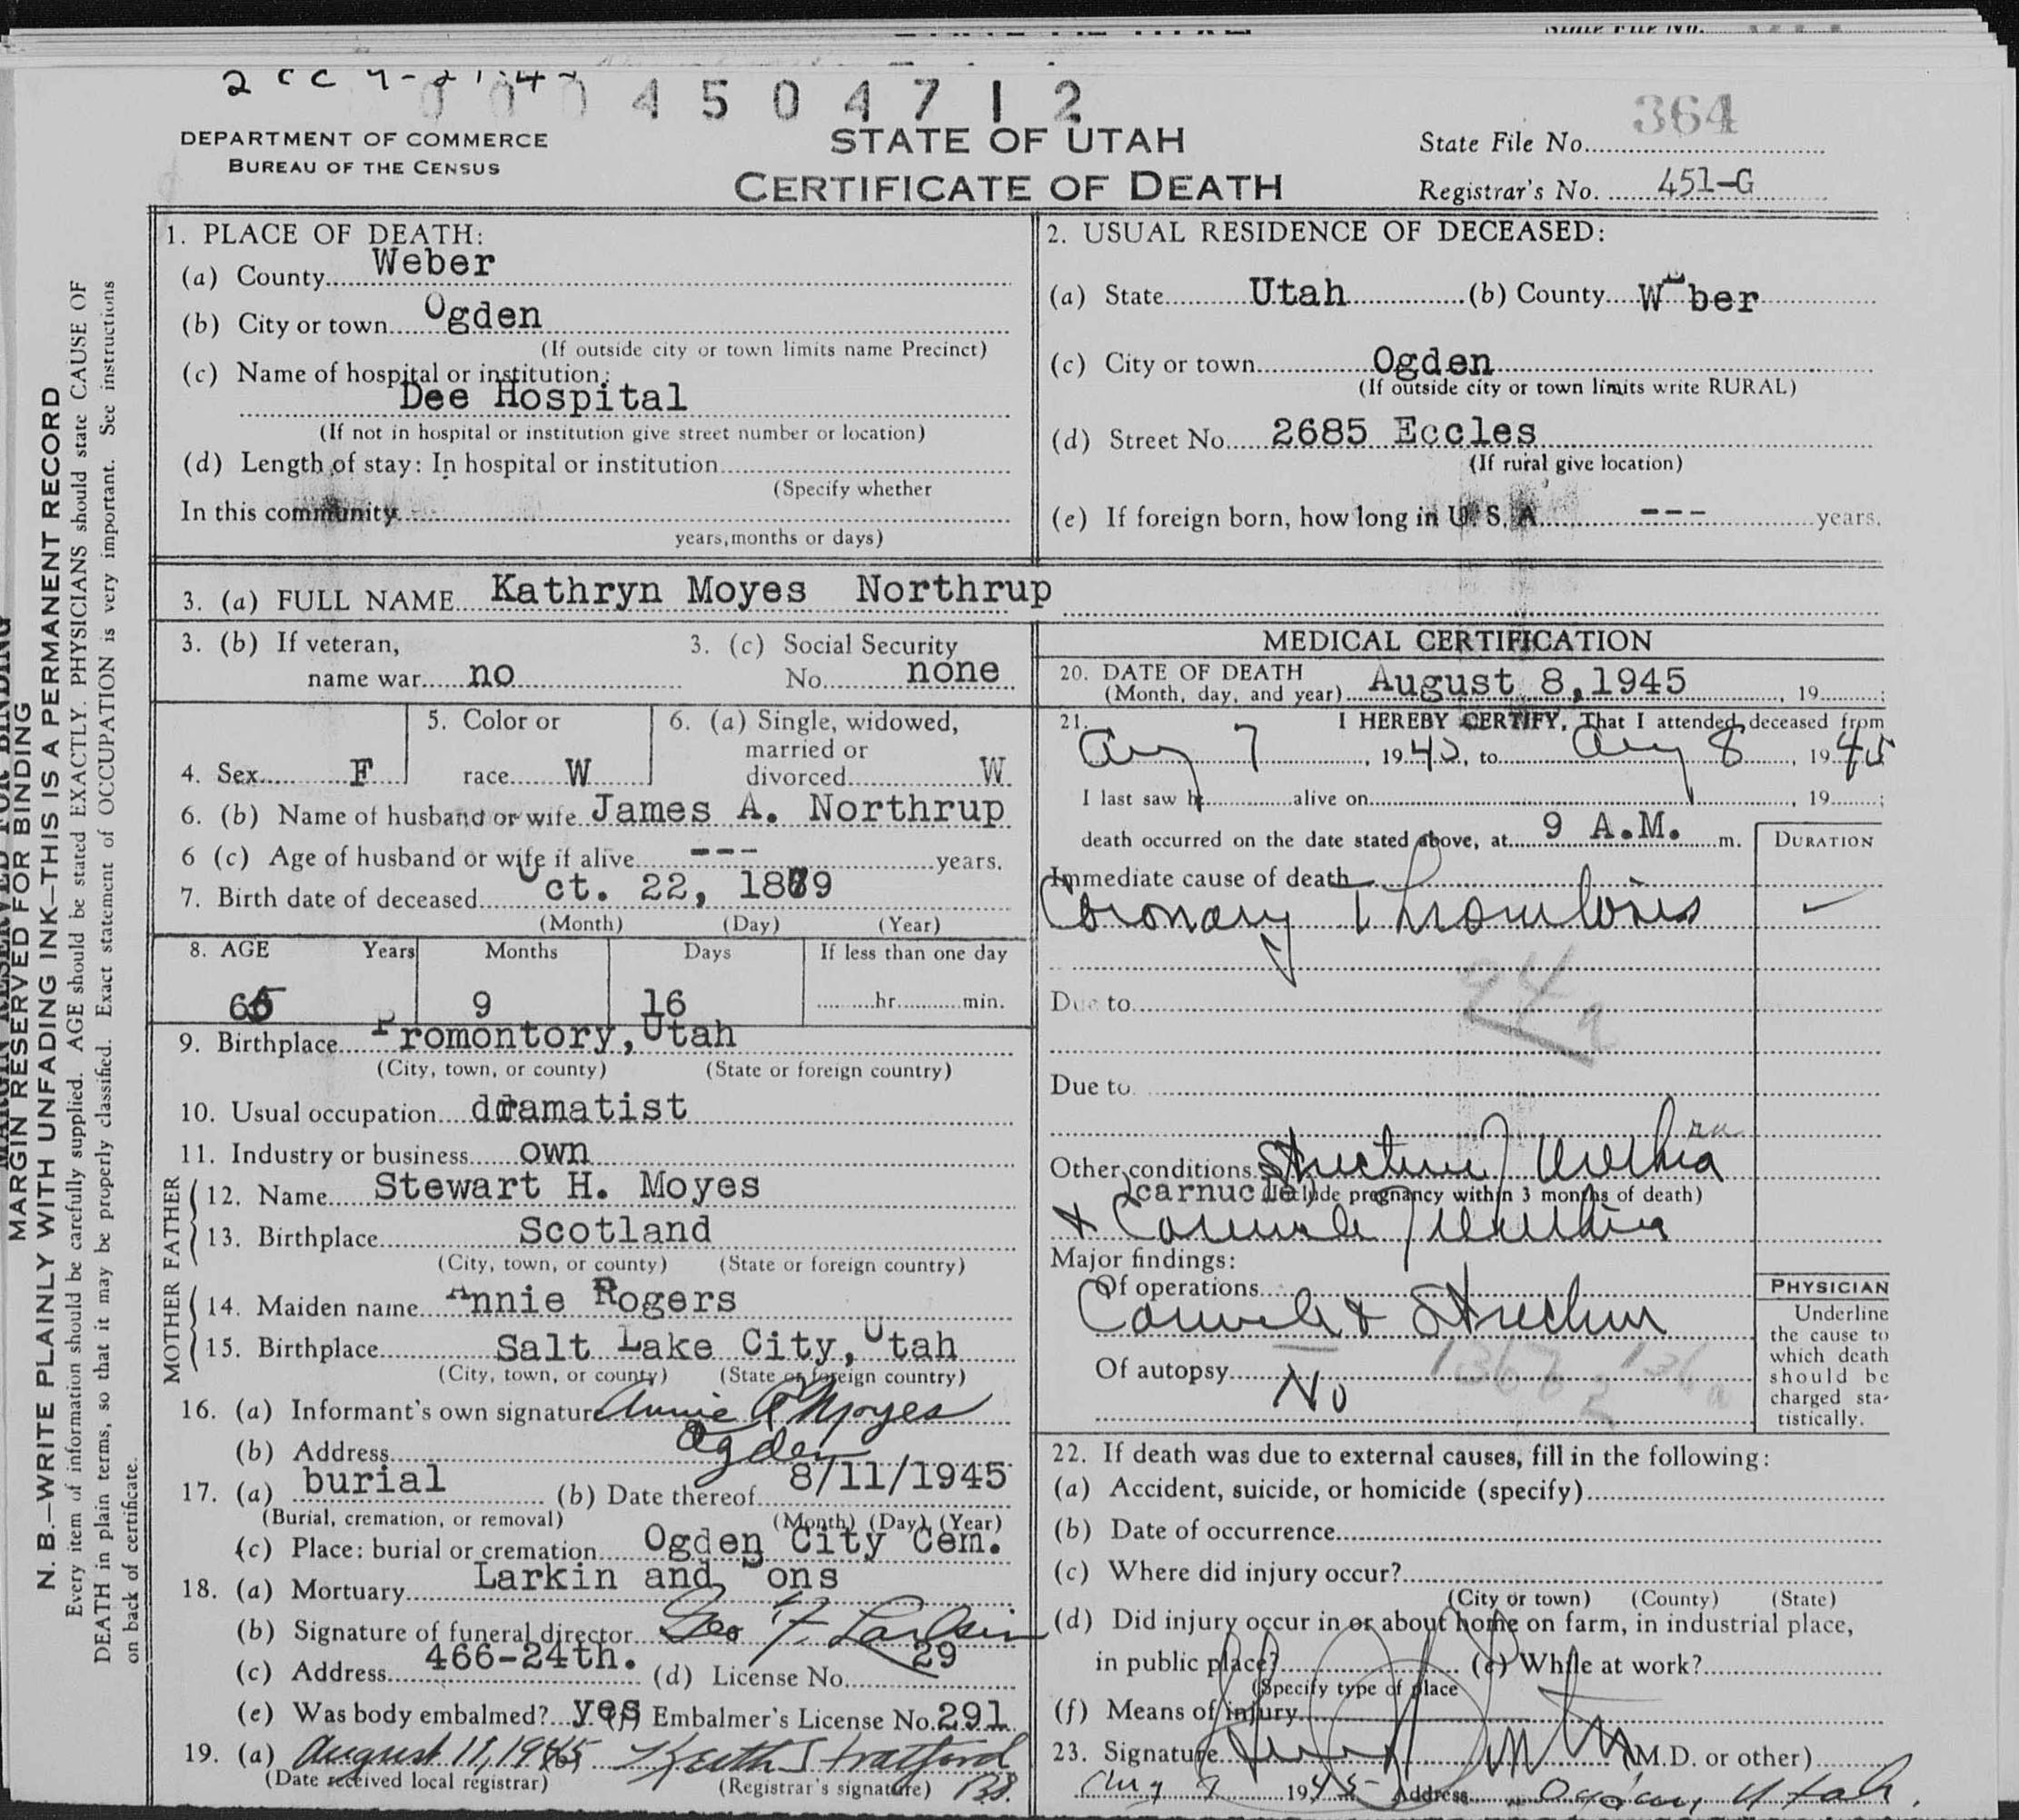 2 CC
4504712
DEPARTMENT OF COMMERCE
BUREAU OF THE CENSUS
STATE OF UTAH
CERTIFICATE OF DEATH
State File No. 364
Registrar's No. 451-G
MARGIN RESERVED FOR BINDING
N. B.—WRITE PLAINLY WITH UNFADING INK—THIS IS A PERMANENT RECORD
Every item of information should be carefully supplied. AGE should be stated EXACTLY. PHYSICIANS should state CAUSE OF
DEATH in plain terms, so that it may be properly classified. Exact statement of OCCUPATION is very important. See instructions
on back of certificate.
1. PLACE OF DEATH:
(a) County Weber
(b) City or town Ogden
(If outside city or town limits name Precinct)
(c) Name of hospital or institution:
Dee Hospital
(If not in hospital or institution give street number or location)
(d) Length of stay: In hospital or institution
(Specify whether
In this community
years, months or days)
2. USUAL RESIDENCE OF DECEASED:
(a) State Utah (b) County Weber
(c) City or town Ogden
(If outside city or town limits write RURAL)
(d) Street No. 2685 Eccles
(If rural give location)
(e) If foreign born, how long in U. S. A. --- years.
3. (a) FULL NAME Kathryn Moyes Northrup
3. (b) If veteran,
name war no
3. (c) Social Security
No. none
4. Sex F
5. Color or
race W
6. (a) Single, widowed,
married or
divorced W
6. (b) Name of husband or wife James A. Northrup
6 (c) Age of husband or wife if alive --- years.
7. Birth date of deceased Oct. 22, 1879
(Month) (Day) (Year)
8. AGE Years Months Days If less than one day
65 9 16 hr. min.
9. Birthplace Promontory, Utah
(City, town, or county) (State or foreign country)
10. Usual occupation dramatist
11. Industry or business own
FATHER
12. Name Stewart H. Moyes
13. Birthplace Scotland
(City, town, or county) (State or foreign country)
MOTHER
14. Maiden name Annie Rogers
15. Birthplace Salt Lake City, Utah
(City, town, or county) (State or foreign country)
16. (a) Informant's own signature Annie R Moyes
(b) Address Ogden
17. (a) burial (b) Date thereof 8/11/1945
(Burial, cremation, or removal) (Month) (Day) (Year)
(c) Place: burial or cremation Ogden City Cem.
18. (a) Mortuary Larkin and Sons
(b) Signature of funeral director Geo F. Larkin
(c) Address 466-24th. (d) License No. 29
(e) Was body embalmed? yes (f) Embalmer's License No. 291
19. (a) August 11, 1945 Keith Stratford
(Date received local registrar) (Registrar's signature) BS.
MEDICAL CERTIFICATION
20. DATE OF DEATH
(Month, day, and year) August 8, 1945, 19 ;
21. I HEREBY CERTIFY, That I attended deceased from
Aug 7, 1945, to Aug 8, 1945
I last saw h alive on , 19 ;
death occurred on the date stated above, at 9 A.M. m.
DURATION
Immediate cause of death
Coronary Thrombosis
94a
Due to
Due to
Other conditions Stricture Urethra
(carnucle) (Include pregnancy within 3 months of death)
+ Caruncle Urethra
Major findings:
Of operations
Caruncle + Stricture
Of autopsy No
PHYSICIAN
Underline
the cause to
which death
should be
charged sta-
tistically.
22. If death was due to external causes, fill in the following:
(a) Accident, suicide, or homicide (specify)
(b) Date of occurrence
(c) Where did injury occur?
(City or town) (County) (State)
(d) Did injury occur in or about home on farm, in industrial place,
in public place? (e) While at work?
(Specify type of place
(f) Means of injury
23. Signature (M.D. or other)
Aug 9 1945 Address Ogden, Utah.